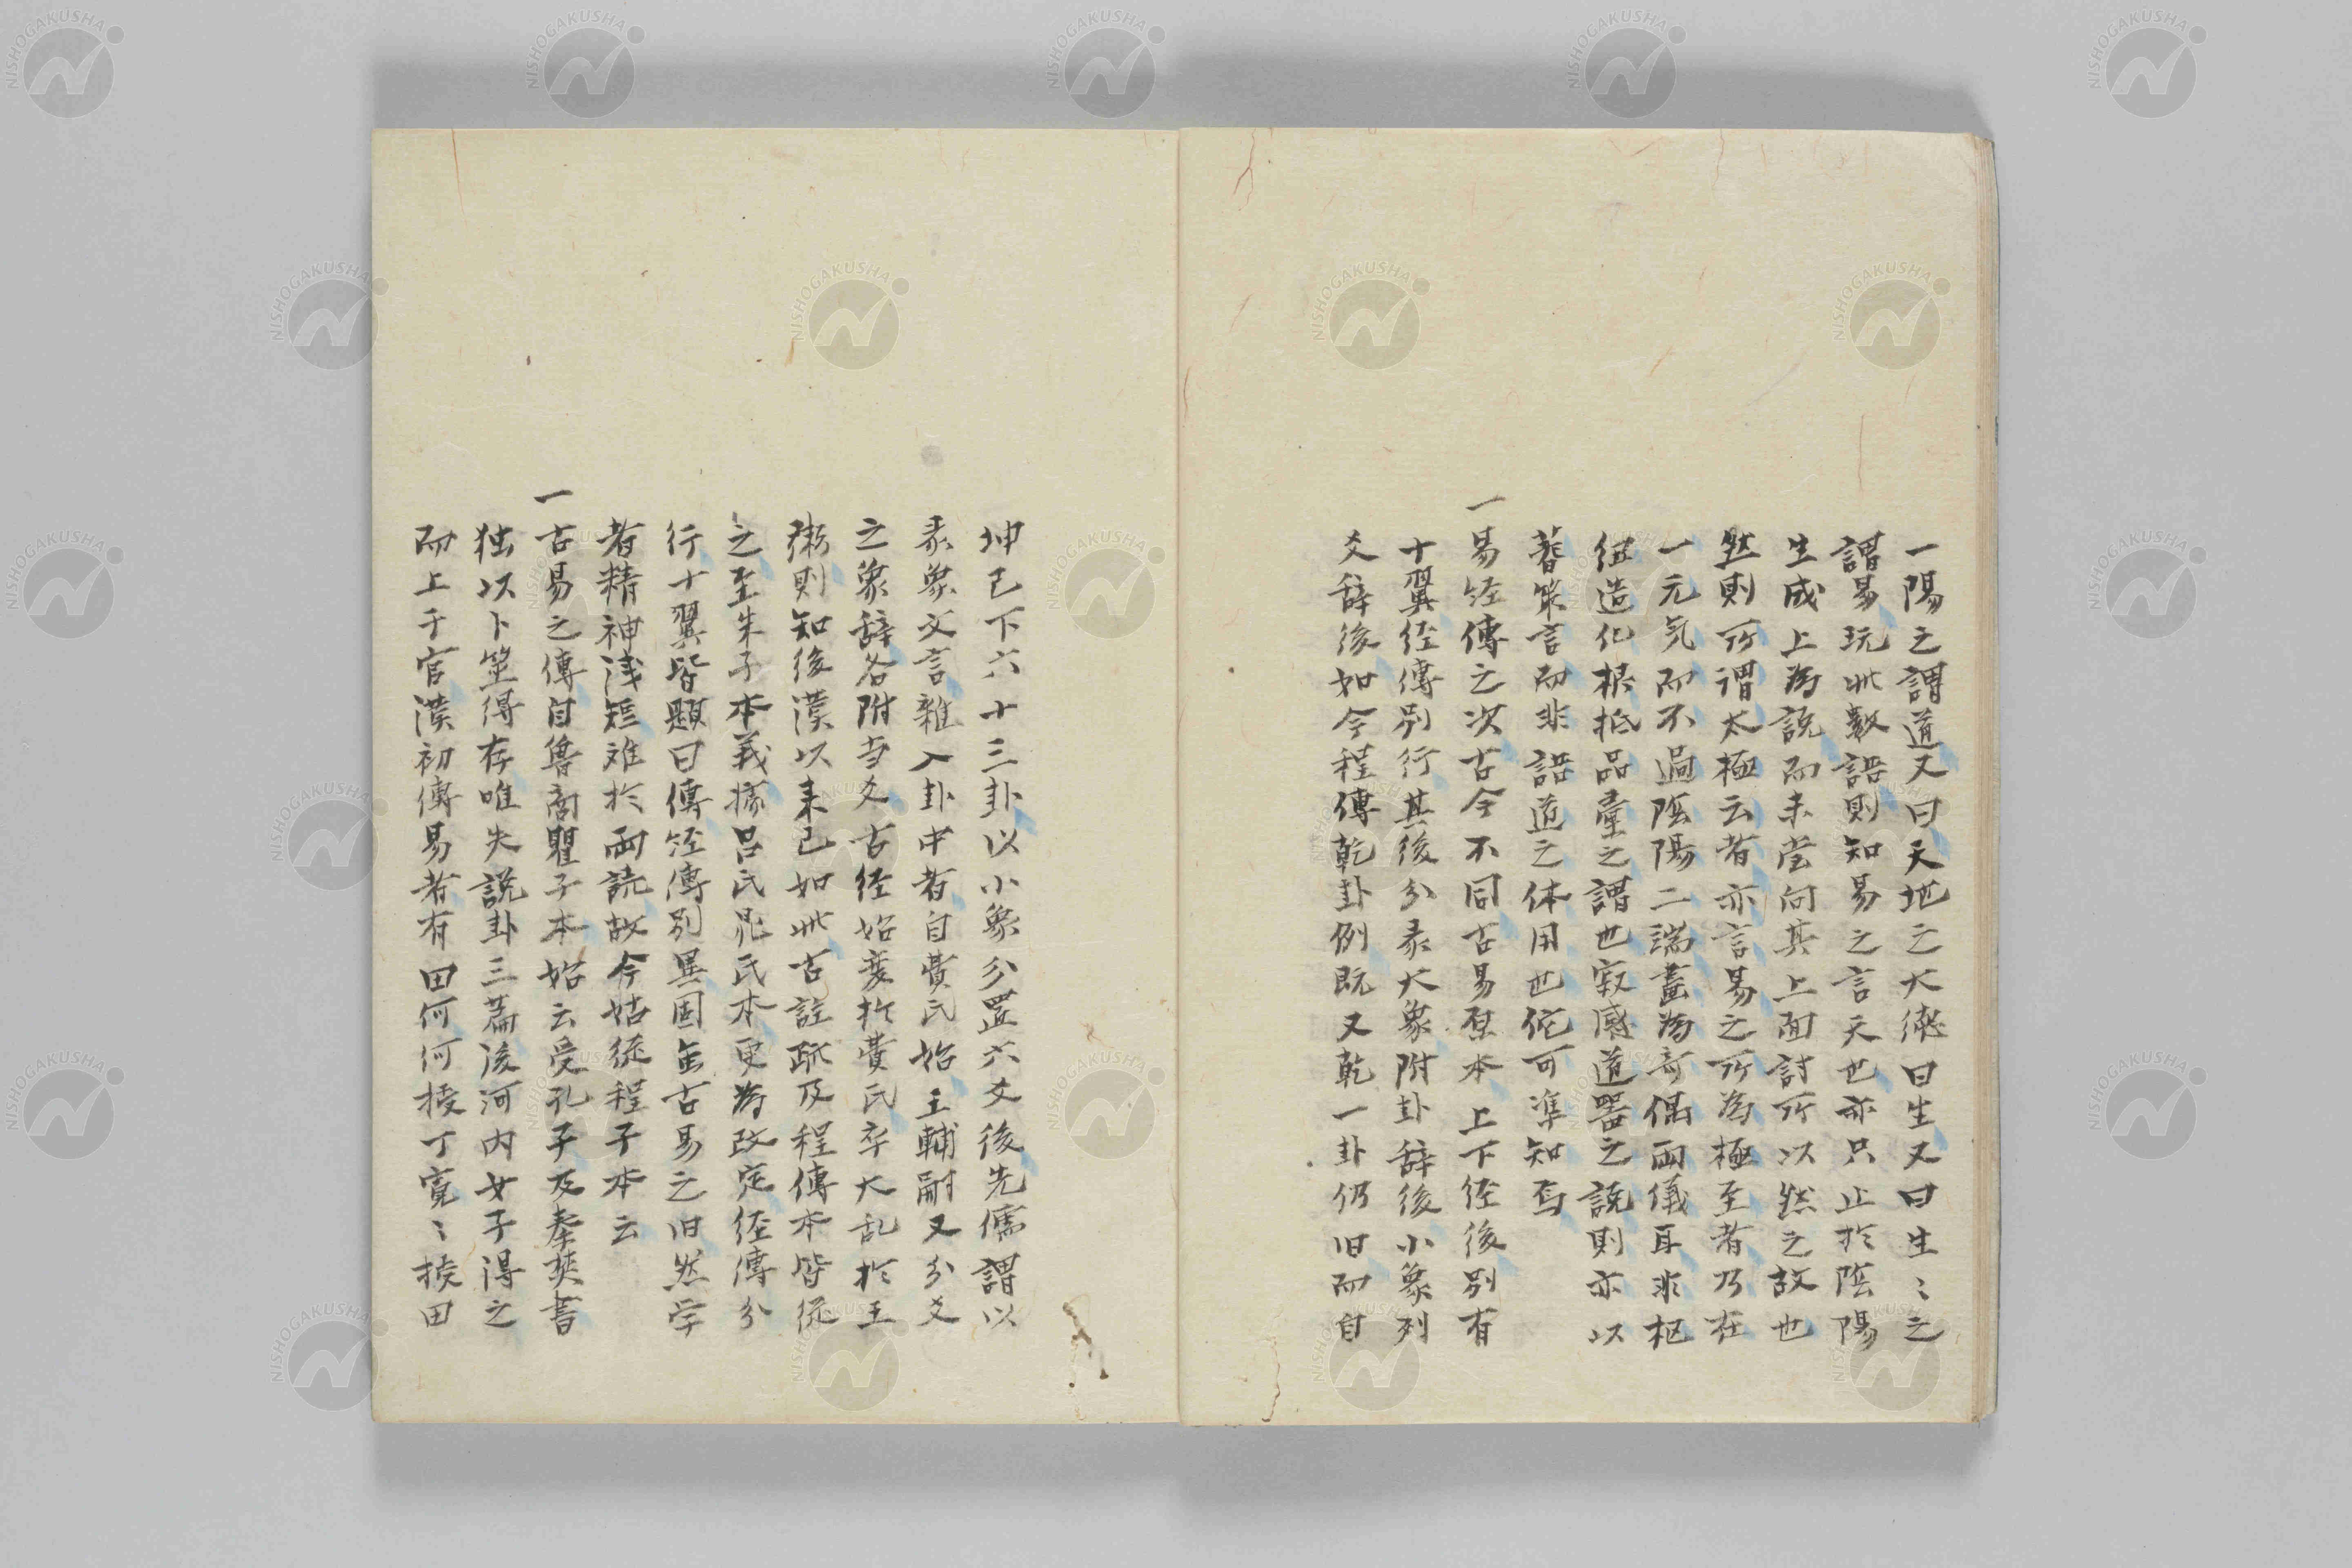 一陽之謂道又曰天地之大徳曰生又曰生〻之
謂易玩此数語則知易之言天也亦只止於陰陽
生成上為説而未嘗向其上面討所以然之故也
然則所謂太極云者亦言易之所為極至者乃在
一元気而不過陰陽二端畫為奇偶両儀耳非枢
紐造化根柢品彙之謂也寂感道器之説則亦以
蓍策言而非語道之体用也佗可準知焉
一易経傳之次古今不同古易原本上下経後別有
十翼経傳別行其後分彖大象附卦辞後小象列
爻辞後如今程傳乾卦例既又乾一卦仍旧而自
坤已下六十三卦以小象分置六爻後先儒謂以
彖象文言雜入卦中者自費氏始王輔嗣又分爻
之象辞各附当爻古経始変於費氏卒大乱於王
弼則知後漢以来已如此古註疏及程傳本皆従
之至朱子本義拠呂氏晁氏本更為改定経傳分
行十翼皆題曰傳経傳別異固無古易之旧然学
者精神浅短难於両読故今姑従程子本云
一古易之傳自魯商瞿子本始云受孔子及秦焚書
独以卜筮得存唯失説卦三篇後河内女子得之
而上于官漢初傳易者有田何何授丁寛〻授田
NISHOGAKUSHA